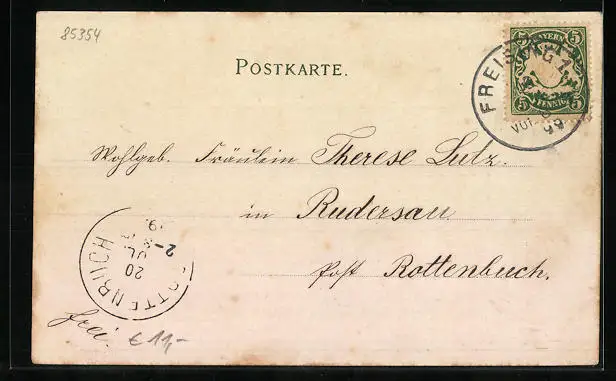 85354
POSTKARTE.
5 BAYERN 5
5 PFENNIG 5
FREISING 1.
99
Wohlgeb. Fräulein Therese Lutz.
in Rudersau
Post Rottenbuch.
ROTTENBUCH
20
JUL
frei.
€ 11,-